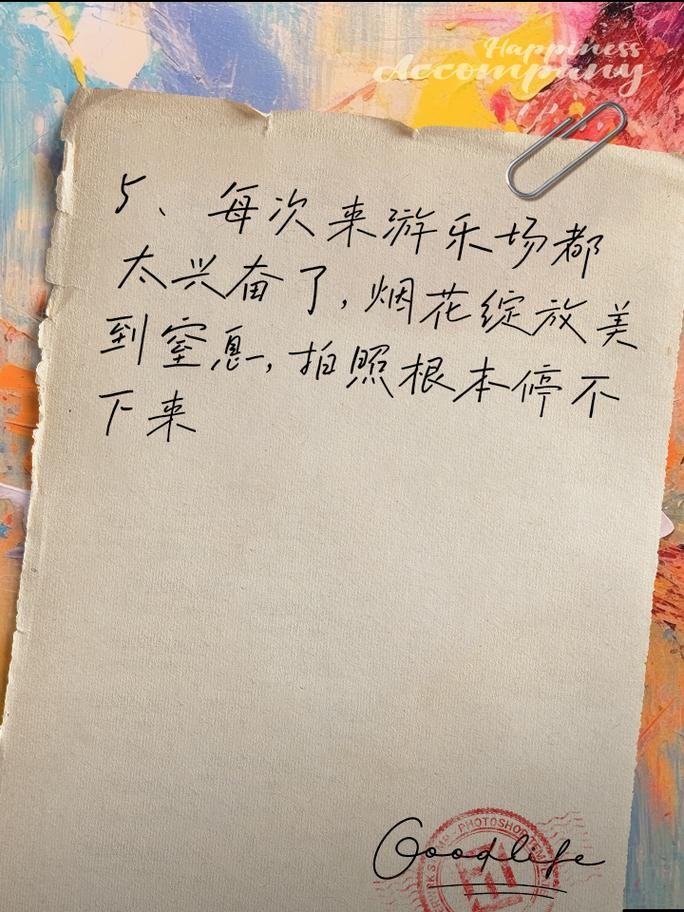 Happiness
Accompany
5、每次来游乐场都
太兴奋了,烟花绽放美
到窒息,拍照根本停不
下来
PHOTOSHOP
Goodlife